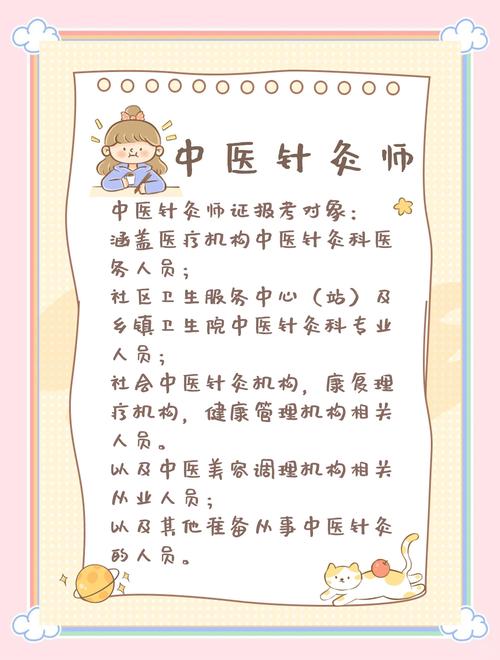 中医针灸师
中医针灸师证报考对象：
涵盖医疗机构中医针灸科医
务人员；
社区卫生服务中心（站）及
乡镇卫生院中医针灸科专业
人员；
社会中医针灸机构，康复理
疗机构，健康管理机构相关
人员。
以及中医美容调理机构相关
从业人员；
以及其他准备从事中医针灸
的人员。